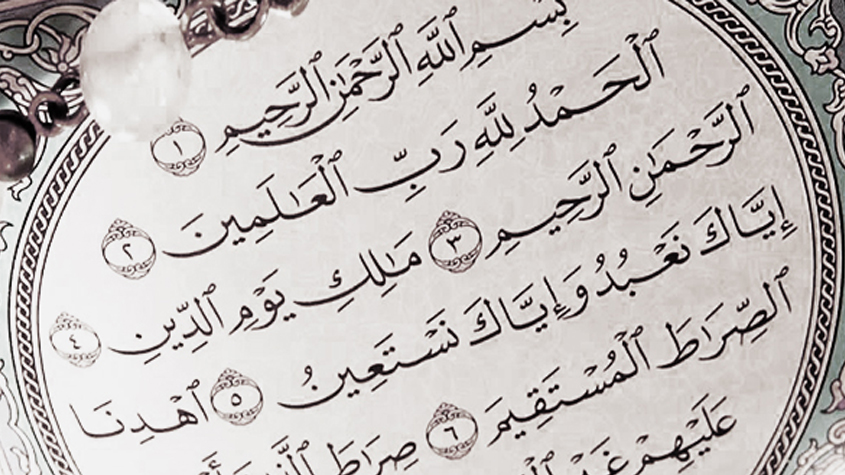 بِسْمِ ٱللَّهِ ٱلرَّحْمَٰنِ ٱلرَّحِيمِ ١
ٱلْحَمْدُ لِلَّهِ رَبِّ ٱلْعَٰلَمِينَ ٢
ٱلرَّحْمَٰنِ ٱلرَّحِيمِ ٣ مَٰلِكِ يَوْمِ ٱلدِّينِ ٤
إِيَّاكَ نَعْبُدُ وَإِيَّاكَ نَسْتَعِينُ ٥ ٱهْدِنَا
ٱلصِّرَٰطَ ٱلْمُسْتَقِيمَ ٦ صِرَٰطَ
عَلَيْهِمْ غَيْرِ